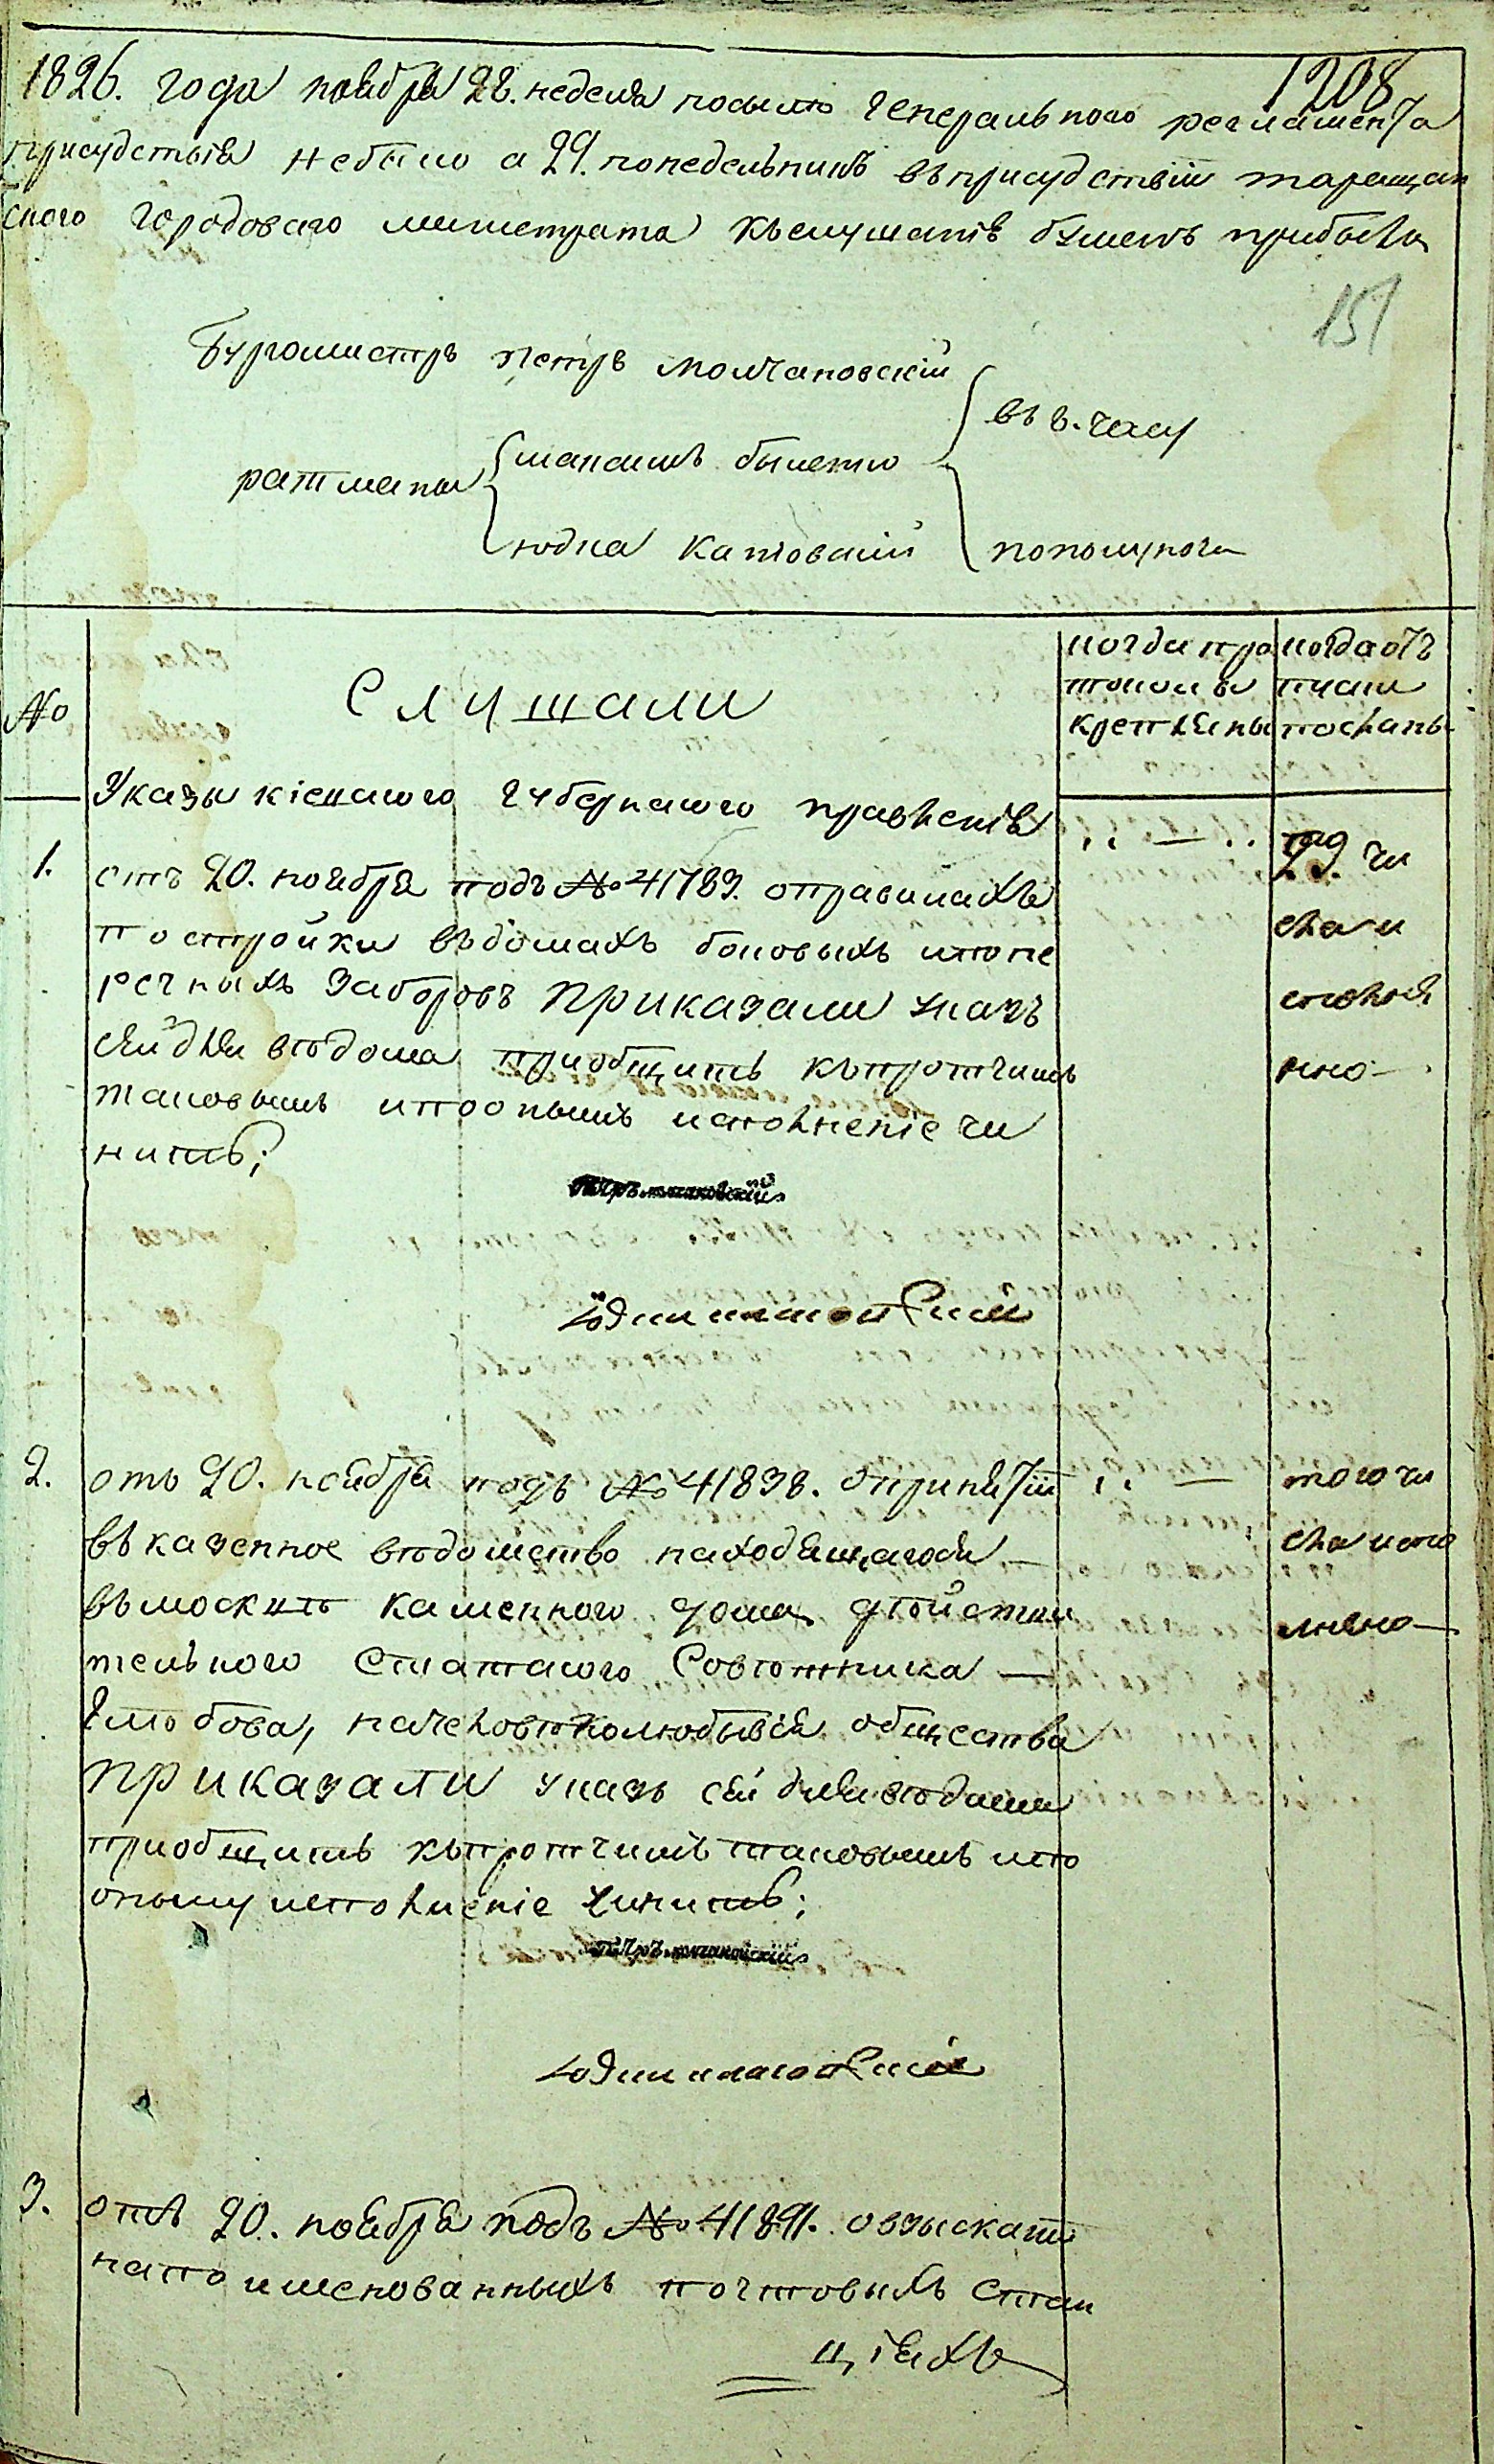 1826. года ноября 28. неделя посилю Генеральнаго регламента
1208
присудствія небыло а 29. понедельникъ въприсудствіи таращан
ского Городоваго магистрата къслушанію бумагъ прибыли
151
Бургомистръ Петръ молчановскій
въ 8. часу
ратманы
юдка
пополуночи
№
Слушали
когда про
токолы
крепленны
когда отъ
пуски
посланы
Указы кіевскаго Губернскаго правленія
1.
отъ 20. ноября подъ № 41783. оправилахъ
постройки въдомахъ боковыхъ ипопе
речныхъ заборовъ Приказали указъ
сей для вѣдома приобщить къпротчимъ
таковымъ ипоонымъ исполненіе чи
нить;
29. чи
сла и
сполне
нно
Петръ молчановскій
2.
отъ 20. ноября подъ № 41838. опринятіи
въказенное вѣдомство находящагося
въмосквѣ каменного дома дѣйстви
тельного Статского Совѣтника
Глѣбова, начеловѣколюбывія общества
Приказали указъ сей для вѣдома
приобщить къпротчимъ таковымъ ипо
оному исполненіе чинить;
того чи
сла испо
лнено
Петръ молчановскій
3.
отъ 20. ноября подъ № 41891. овзыскати
напоименованныхъ почтовыхъ стан
ціяхъ